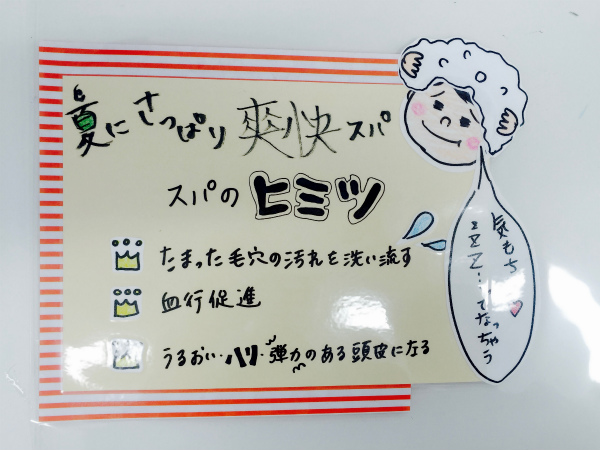 夏にさっぱり爽快スパ
スパのヒミツ
たまった毛穴の汚れを洗い流す
血行促進
うるおい・ハリ・弾力のある頭皮になる
気もち
zzz…てなっちゃう